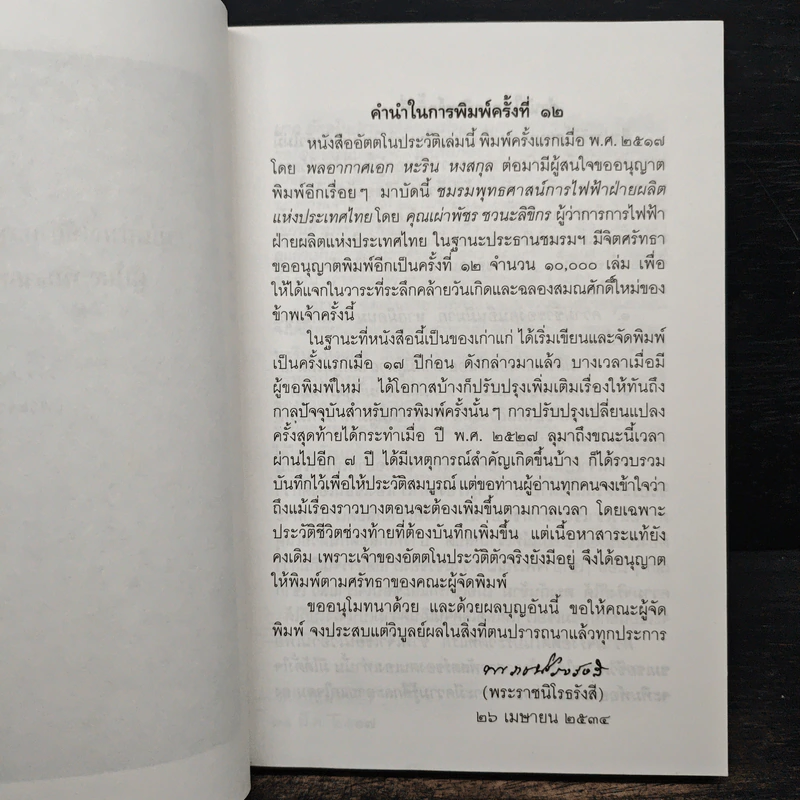 คำนำในการพิมพ์ครั้งที่ ๑๒
หนังสืออัตตโนประวัติเล่มนี้ พิมพ์ครั้งแรกเมื่อ พ.ศ. ๒๕๑๗
โดย พลอากาศเอก หะริน หงสกุล ต่อมามีผู้สนใจขออนุญาต
พิมพ์อีกเรื่อยๆ มาบัดนี้ ชมรมพุทธศาสน์การไฟฟ้าฝ่ายผลิต
แห่งประเทศไทย โดย คุณเผ่าพัชร ชวนะลิขิกร ผู้ว่าการการไฟฟ้า
ฝ่ายผลิตแห่งประเทศไทย ในฐานะประธานชมรมฯ มีจิตศรัทธา
ขออนุญาตพิมพ์อีกเป็นครั้งที่ ๑๒ จำนวน ๑๐,๐๐๐ เล่ม เพื่อ
ให้ได้แจกในวาระที่ระลึกคล้ายวันเกิดและฉลองสมณศักดิ์ใหม่ของ
ข้าพเจ้าครั้งนี้
ในฐานะที่หนังสือนี้เป็นของเก่าแก่ ได้เริ่มเขียนและจัดพิมพ์
เป็นครั้งแรกเมื่อ ๑๗ ปีก่อน ดังกล่าวมาแล้ว บางเวลาเมื่อมี
ผู้ขอพิมพ์ใหม่ ได้โอกาสบ้างก็ปรับปรุงเพิ่มเติมเรื่องให้ทันถึง
กาลปัจจุบันสำหรับการพิมพ์ครั้งนั้นๆ การปรับปรุงเปลี่ยนแปลง
ครั้งสุดท้ายได้กระทำเมื่อ ปี พ.ศ. ๒๕๒๗ ลุมาถึงขณะนี้เวลา
ผ่านไปอีก ๗ ปี ได้มีเหตุการณ์สำคัญเกิดขึ้นบ้าง ก็ได้รวบรวม
บันทึกไว้เพื่อให้ประวัติสมบูรณ์ แต่ขอท่านผู้อ่านทุกคนจงเข้าใจว่า
ถึงแม้เรื่องราวบางตอนจะต้องเพิ่มขึ้นตามกาลเวลา โดยเฉพาะ
ประวัติชีวิตช่วงท้ายที่ต้องบันทึกเพิ่มขึ้น แต่เนื้อหาสาระแท้ยัง
คงเดิม เพราะเจ้าของอัตตโนประวัติตัวจริงยังมีอยู่ จึงได้อนุญาต
ให้พิมพ์ตามศรัทธาของคณะผู้จัดพิมพ์
ขออนุโมทนาด้วย และด้วยผลบุญอันนี้ ขอให้คณะผู้จัด
พิมพ์ จงประสบแต่วิบูลย์ผลในสิ่งที่ตนปรารถนาแล้วทุกประการ
(พระราชนิโรธรังสี)
๒๖ เมษายน ๒๕๓๔